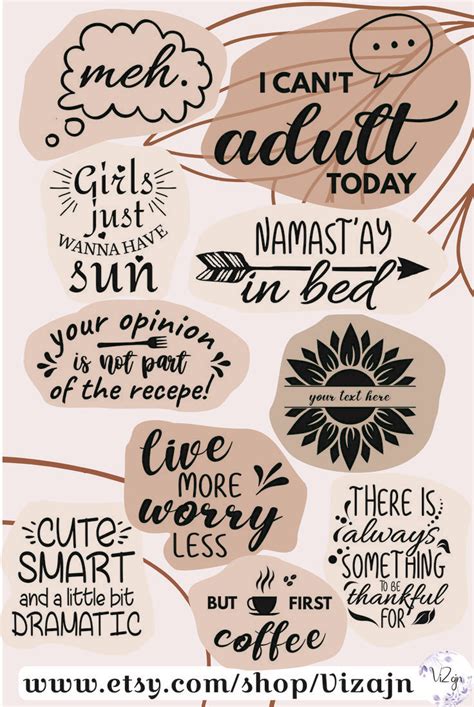 meh.
I CAN'T
adult
TODAY
Girls
just
WANNA HAVE
sun
NAMAST'AY
in bed
your opinion
is not part
of the recepe!
your text here
live
MORE
worry
LESS
CUTE
SMART
and a little bit
DRAMATIC
THERE IS
always
SOMETHING
TO BE
thankful
FOR
BUT FIRST
coffee
www.etsy.com/shop/Vizajn
ViZajn